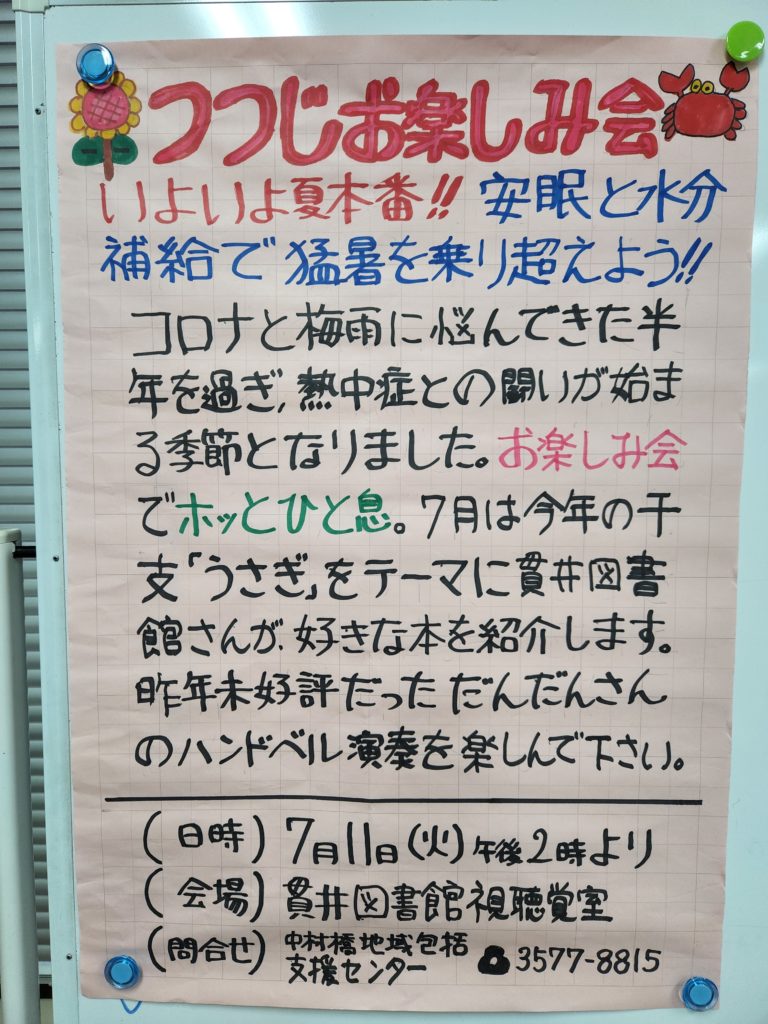 つつじお楽しみ会
いよいよ夏本番!! 安眠と水分
補給で猛暑を乗り超えよう!!
コロナと梅雨に悩んできた半
年を過ぎ、熱中症との闘いが始ま
る季節となりました。お楽しみ会
でホッとひと息。7月は今年の干
支「うさぎ」をテーマに貫井図書
館さんが、好きな本を紹介します。
昨年末好評だっただんだんさん
のハンドベル演奏を楽しんで下さい。
(日時) 7月11日(火)午後2時より
(会場) 貫井図書館視聴覚室
(問合せ) 中村橋地域包括
支援センター ☎3577-8815